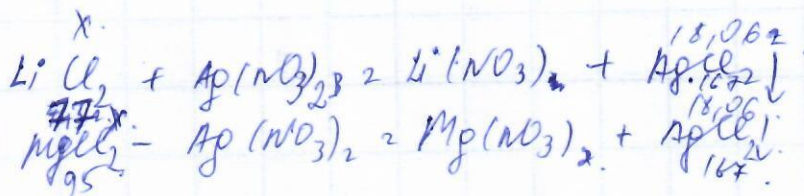 x.
18,06г
LiCl₂ + Ag(NO3)₂ = Li(NO3) + AgCl₂↓
77 x. 167 18,06
MgCl₂ - Ag(NO3)₂ = Mg(NO3)₂ + AgCl₂↓
95 167